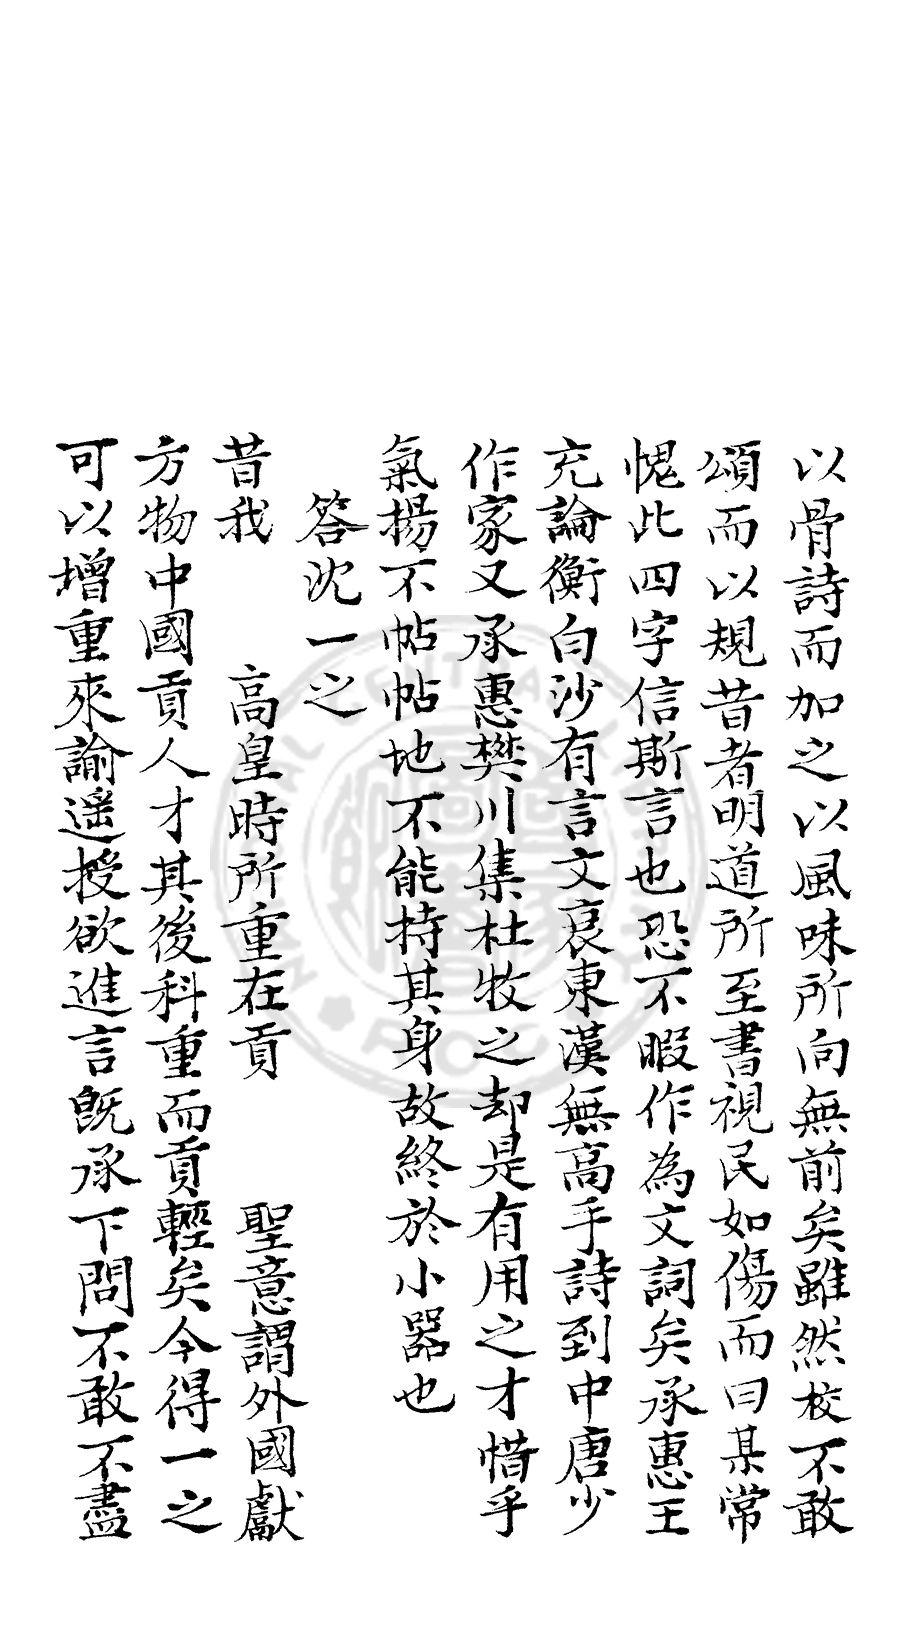 以骨詩而加之以風味所向無前矣雖然校不敢
頌而以規昔者明道所至書視民如傷而曰某常
愧此四字信斯言也恐不暇作為文詞矣承惠王
充論衡白沙有言文衰東漢無高手詩到中唐少
作家又承惠樊川集杜牧之却是有用之才惜乎
氣揚不帖帖地不能持其身故終於小器也
答沈一之
昔我 高皇時所重在貢 聖意謂外國獻
方物中國貢人才其後科重而貢輕矣今得一之
可以增重來諭遥授欲進言既承下問不敢不盡